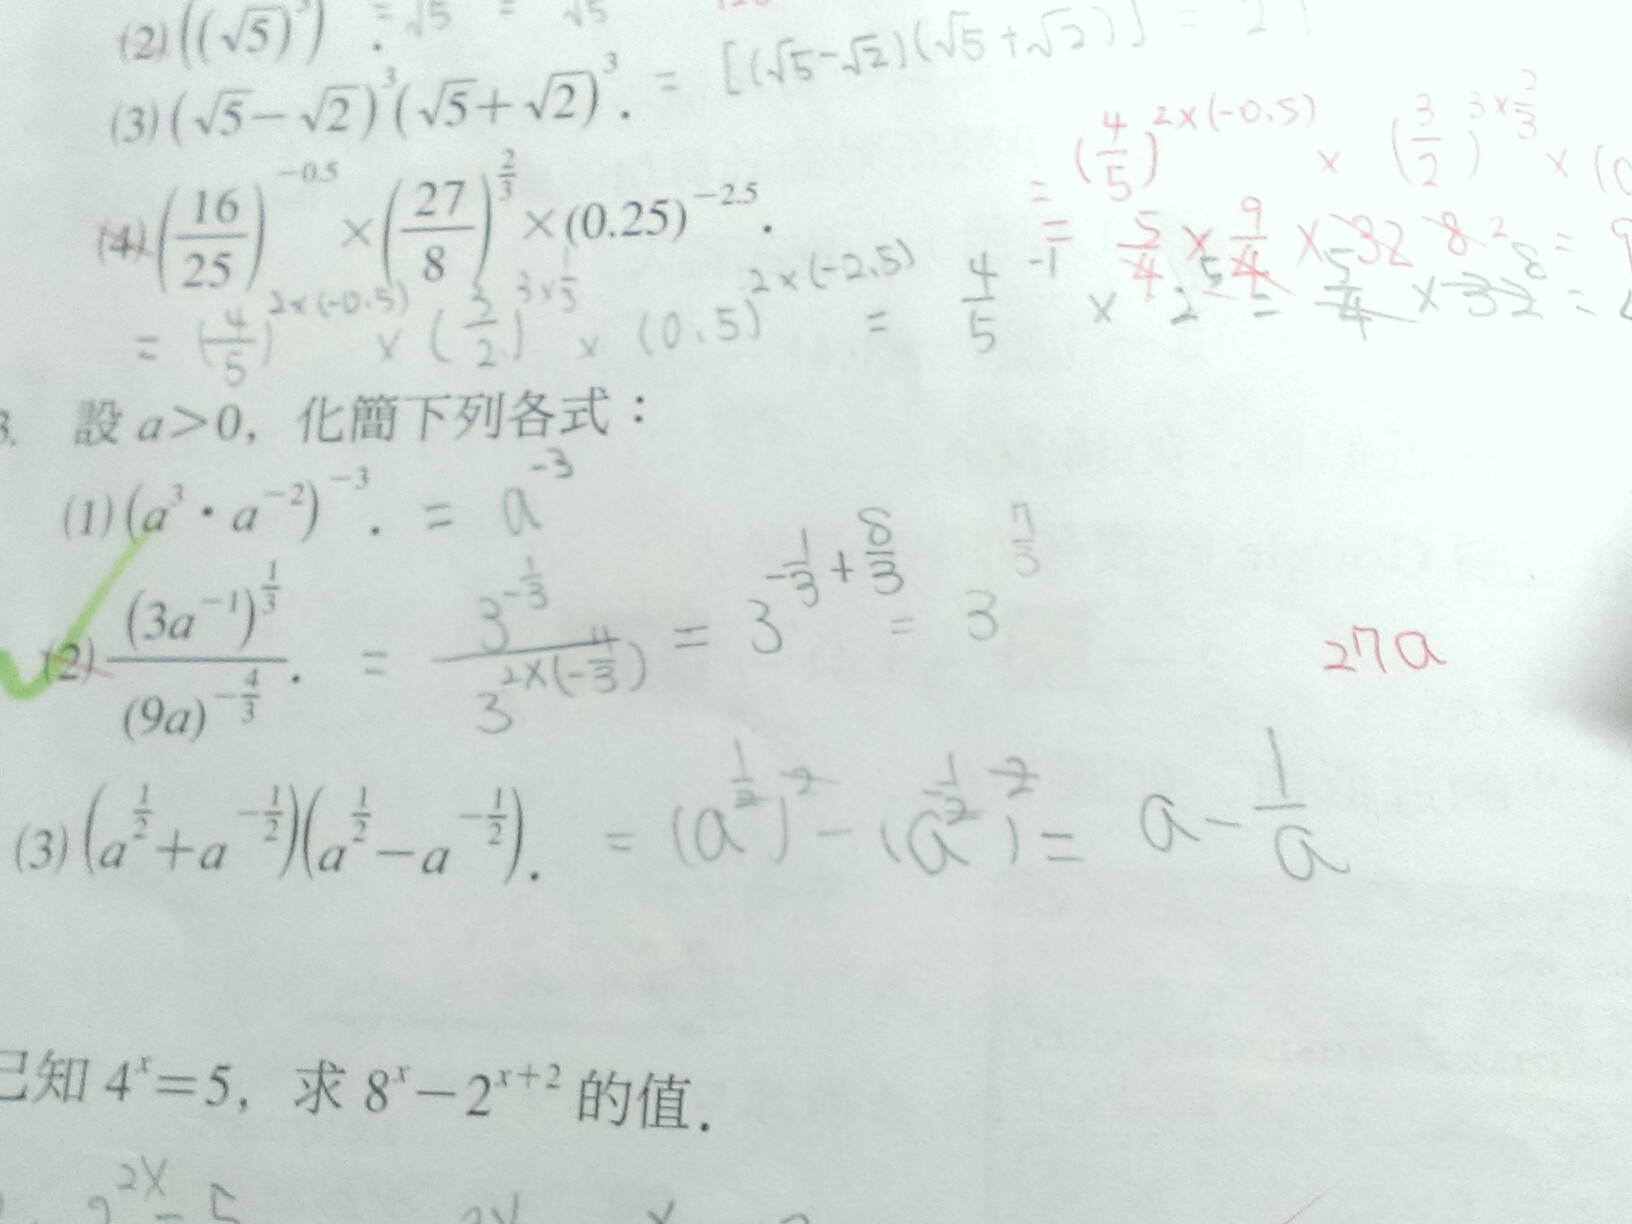 (2) ((√5)³) . = √5 = √5
(3) (√5−√2)³(√5+√2)³. = [(√5−√2)(√5+√2)] =
(4) (16/25)^−0.5 × (27/8)^(2/3) × (0.25)^−2.5.
= (4/5)^2×(−0.5) × (3/2)^3×2/3 × (0
= 5/4 × 9/4 × 32 8 2 = 9
= (4/5)^2×(−0.5) × (3/2)^3×1/3 × (0.5)^2×(−2.5) = 4/5^−1 × 2^5 = 5/4 × 32 8 =
3. 設 a>0, 化簡下列各式：
(1) (a³・a^−2)^−3. = a^−3
(2) (3a^−1)^(1/3) / (9a)^(−4/3). = 3^(−1/3) / 3^(2×(−4/3)) = 3^(−1/3+8/3) = 3^(7/3)
27a
(3) (a^(1/2)+a^(−1/2))(a^(1/2)−a^(−1/2)). = (a^(1/2))^2 − (a^(−1/2))^2 = a − 1/a
已知 4^x=5, 求 8^x−2^(x+2) 的值.